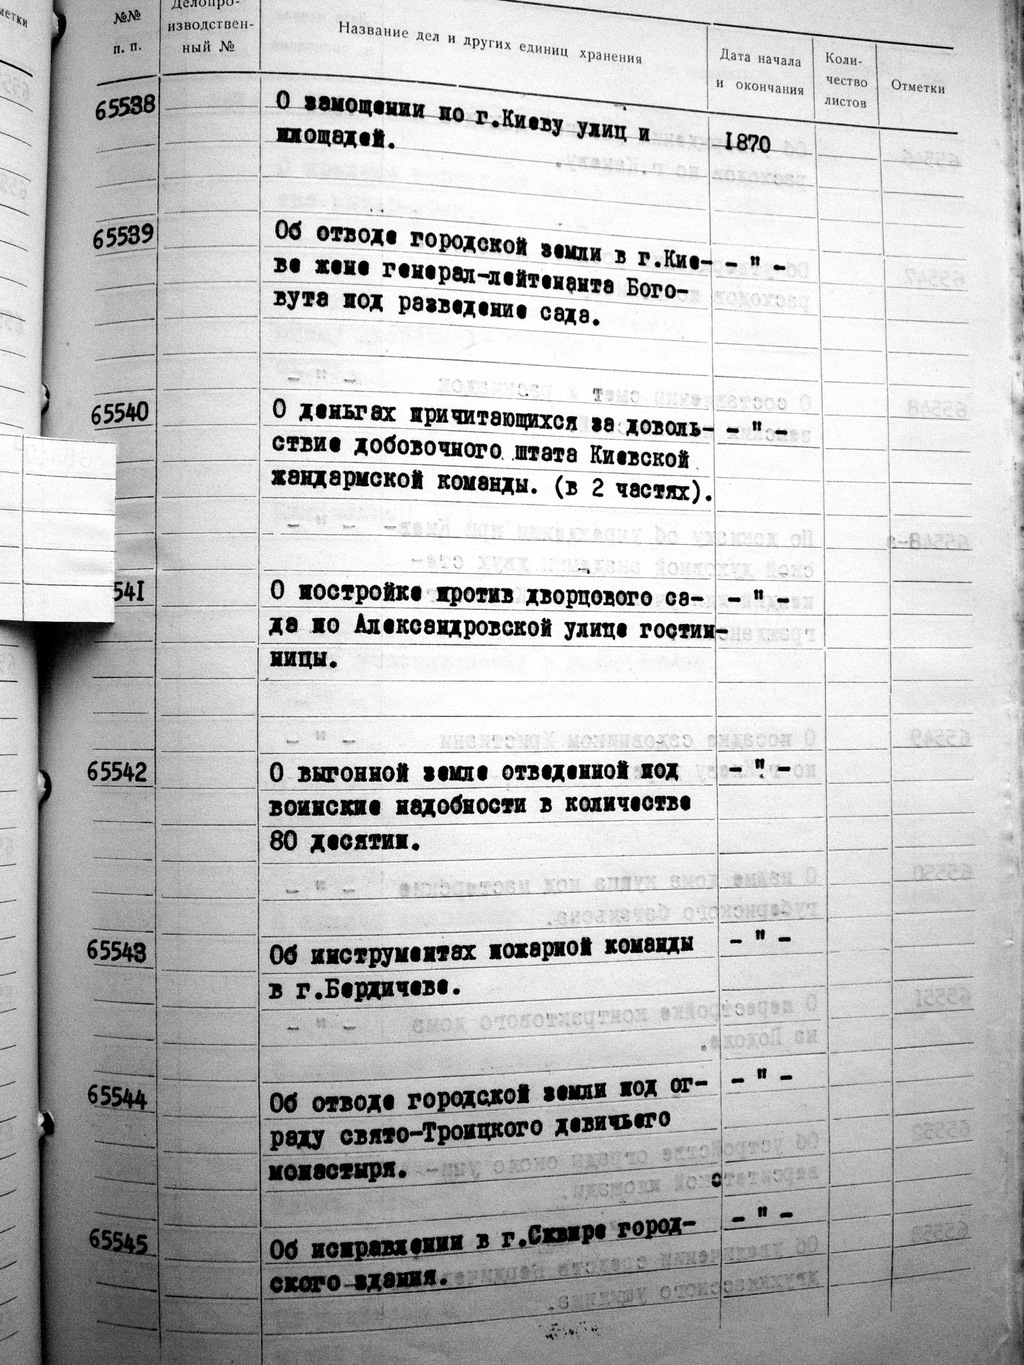 №№
п. п.
Делопро-
изводствен-
ный №
Название дел и других единиц хранения
Дата начала
и окончания
Коли-
чество
листов
Отметки
65538
О замощении по г.Киеву улиц и
площадей.
1870
65539
Об отводе городской земли в г.Кие-
ве жене генерал-лейтенанта Бого-
вута под разведение сада.
- " -
65540
О деньгах причитающихся за доволь-
ствие добовочного штата Киевской
жандармской команды. (в 2 частях).
- " -
541
О постройке против дворцового са-
да по Александровской улице гостин-
ницы.
- " -
65542
О выгонной земле отведенной под
воинские надобности в количестве
80 десятин.
- " -
65543
Об инструментах пожарной команды
в г.Бердичеве.
- " -
65544
Об отводе городской земли под ог-
раду свято-Троицкого девичьего
монастыря.
- " -
65545
Об исправлении в г.Сквире город-
ского здания.
- " -